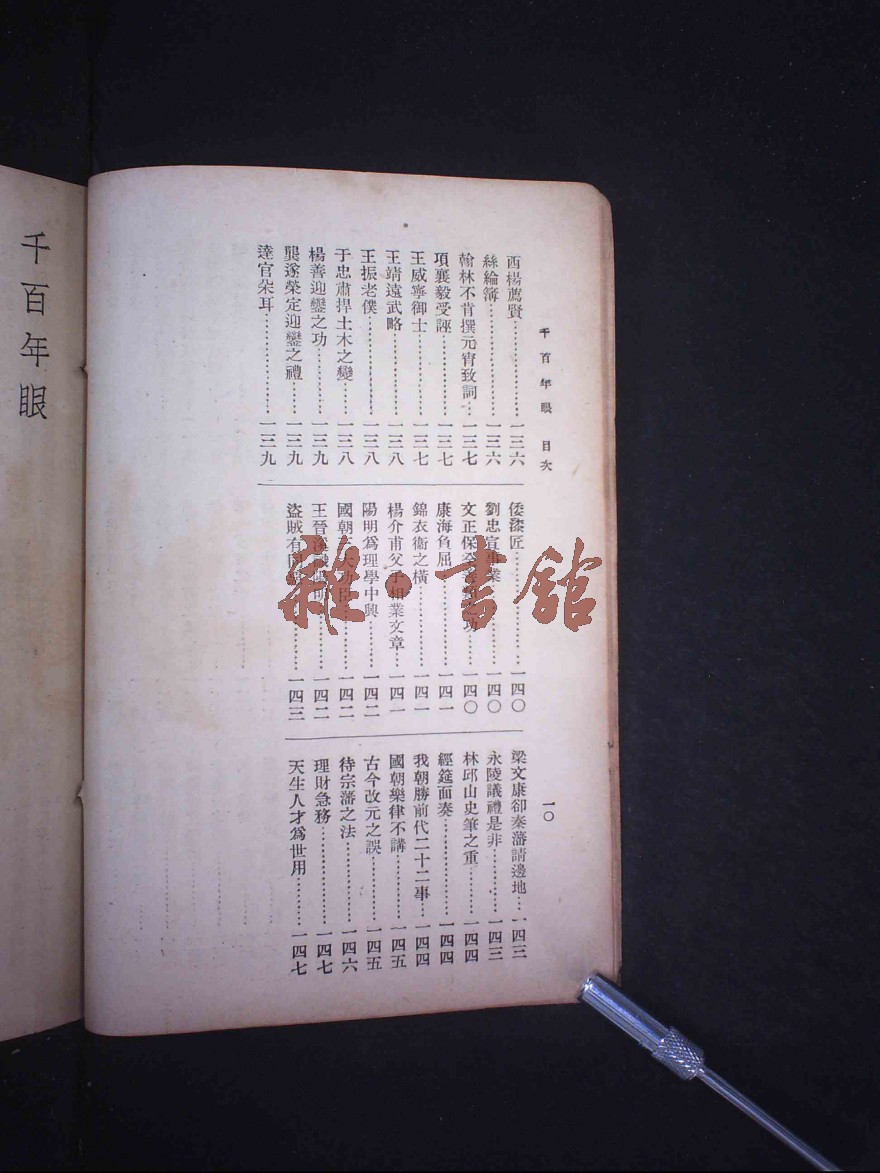 千百年眼 目次
一〇
西楊薦賢……一三六
絲綸簿……一三六
翰林不肯撰元宵致詞……一三七
項襄毅受誣……一三七
王威寧御士……一三七
王靖遠武略……一三八
王振老僕……一三八
于忠肅捍土木之變……一三八
楊善迎鑾之功……一三九
龔遂榮定迎鑾之禮……一三九
達官朵耳……一三九
倭漆匠……一四〇
劉忠宣業……一四〇
文正保之功……一四〇
康海負屈……一四一
錦衣衞之橫……一四一
楊介甫父子相業文章……一四一
陽明爲理學中興……一四二
國朝大功臣……一四二
王晉溪明……一四二
盜賊有……一四三
梁文康卻秦藩請邊地……一四三
永陵議禮是非……一四三
林邱山史筆之重……一四四
經筵面奏……一四四
我朝勝前代二十二事……一四四
國朝樂律不講……一四五
古今改元之誤……一四五
待宗藩之法……一四六
理財急務……一四七
天生人才爲世用……一四七
千百年眼
雜·書館